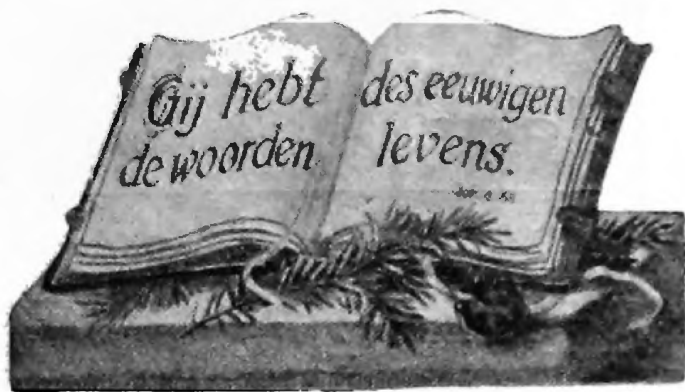 Gij hebt
de woorden
des eeuwigen
levens.